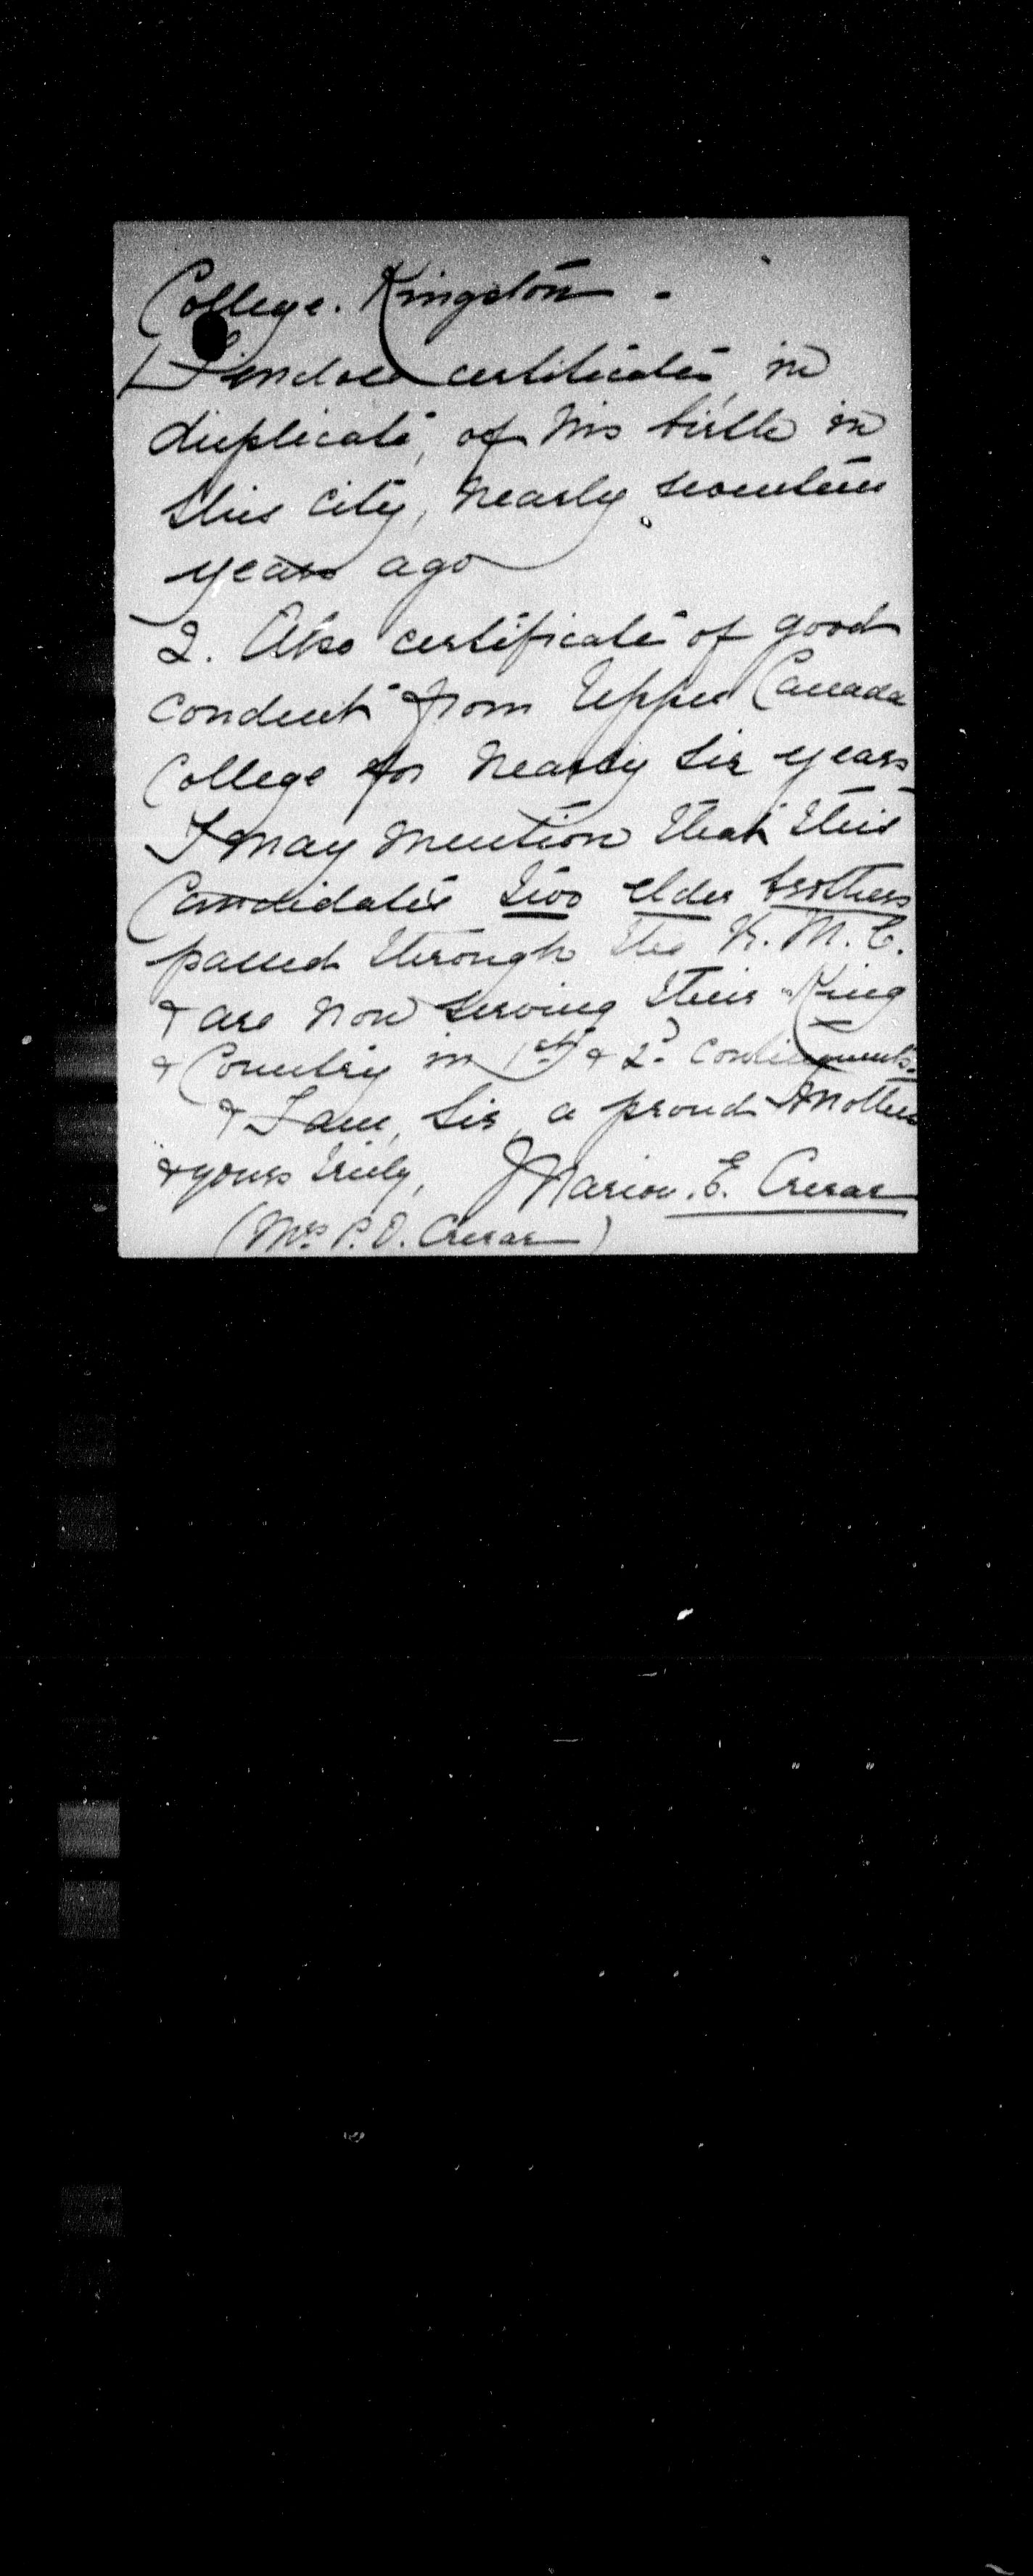 College. Kingston.
1 I enclose certificates, in
duplicate, of his birth in
this city, nearly seventeen
years ago
2. Also certificate of good
conduct from Upper Canada
College for nearly six years
I may mention that this
Candidate's two elder brothers
passed through the R. M. C.
& are now serving their King
& Country in 1st & 2d. contingents.
& I am, Sir, a proud Mother
& yours truly, Marion. E. Crerar
(Mrs P. D. Crerar)